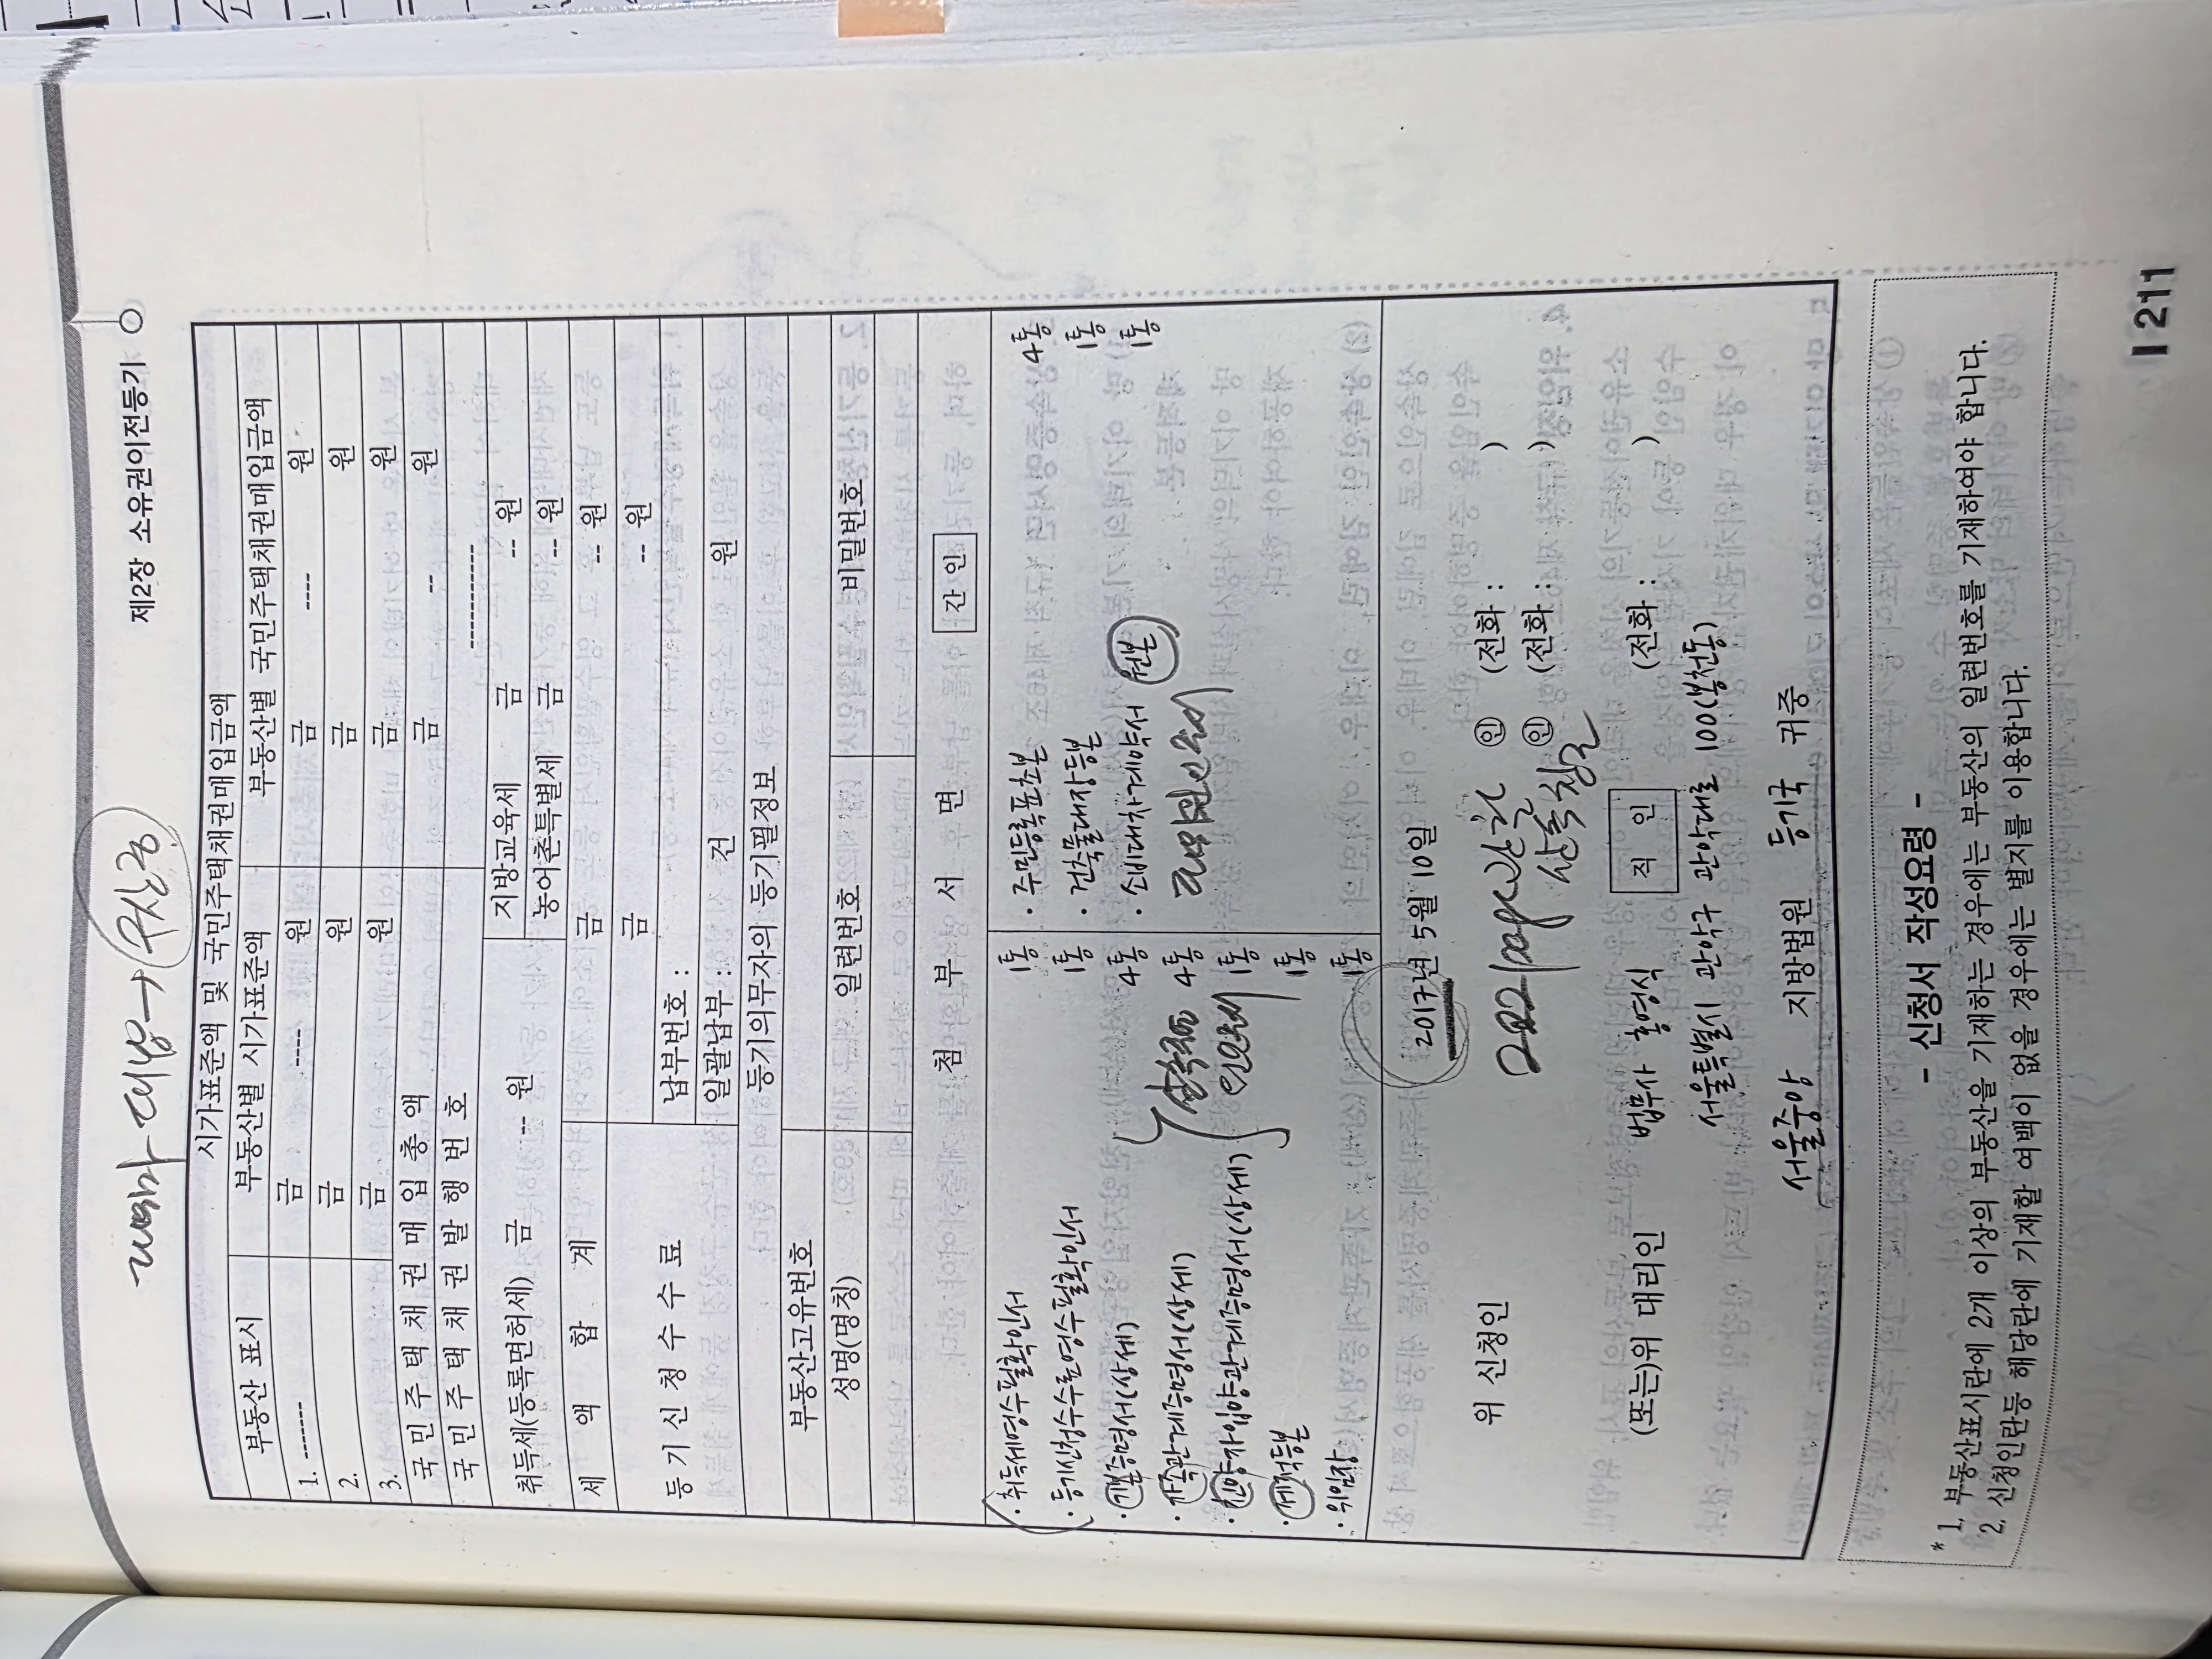 제2장 소유권이전등기
시가표준액 및 국민주택채권매입금액
부동산 표시 부동산별 시가표준액 부동산별 국민주택채권매입금액
1. ------- 금 ---- 원 금 ---- 원
2. 금 원 금 원
3. 금 원 금 원
국 민 주 택 채 권 매 입 총 액 금 -- 원
국 민 주 택 채 권 발 행 번 호 -----------
취득세(등록면허세) 금 -- 원 지방교육세 금 -- 원
농어촌특별세 금 -- 원
세 액 합 계 금 -- 원
등 기 신 청 수 수 료 금 -- 원
납부번호 :
일괄납부 : 건 원
등기의무자의 등기필정보
부동산고유번호
성명(명칭) 일련번호 비밀번호
첨 부 서 면 간 인
· 취득세영수필확인서 1통
· 등기신청수수료영수필확인서 1통
· 기본증명서(상세) 4통
· 가족관계증명서(상세) 4통
· 친양자입양관계증명서(상세) 1통
· 제적등본 1통
· 위임장 1통
· 주민등록표초본 4통
· 건축물대장등본 1통
· 소비대차계약서 원본 1통
2017년 5월 10일
위 신청인 ㊞ (전화 : )
㊞ (전화 : )
(또는)위 대리인 법무사 홍영식 직 인 (전화 : )
서울특별시 관악구 관악대로 100(봉천동)
서울중앙 지방법원 등기국 귀중
- 신청서 작성요령 -
* 1. 부동산표시란에 2개 이상의 부동산을 기재하는 경우에는 부동산의 일련번호를 기재하여야 합니다.
2. 신청인란등 해당란에 기재할 여백이 없을 경우에는 별지를 이용합니다.
211